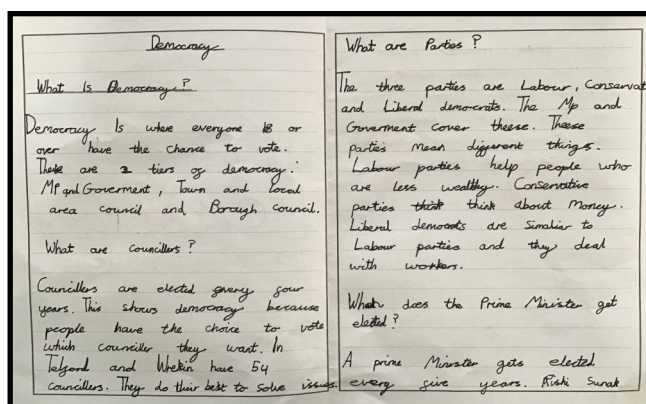 Democracy
What Is Democracy?
Democracy Is when everyone 18 or
over have the chance to vote.
There are 2 tiers of democracy.
Mp and Goverment, Town and Local
area council and Borough council.
What are councillers?
Councillers are elected every four
years. This shows democracy because
people have the choice to vote
which counciller they want. In
Telford and Wrekin have 54
councillers. They do their best to solve issues.
What are Parties?
The three parties are Labour, Conservat
and Liberal democrats. The Mp and
Goverment cover theese. Theese
parties mean different things.
Labour parties help people who
are less wealthy. Conservative
parties think think about money.
Liberal democrats are Simaliar to
Labour parties and they deal
with workers.
When does the Prime Minister get
elected?
A prime Minister gets elected
every five years. Rishi Sunak